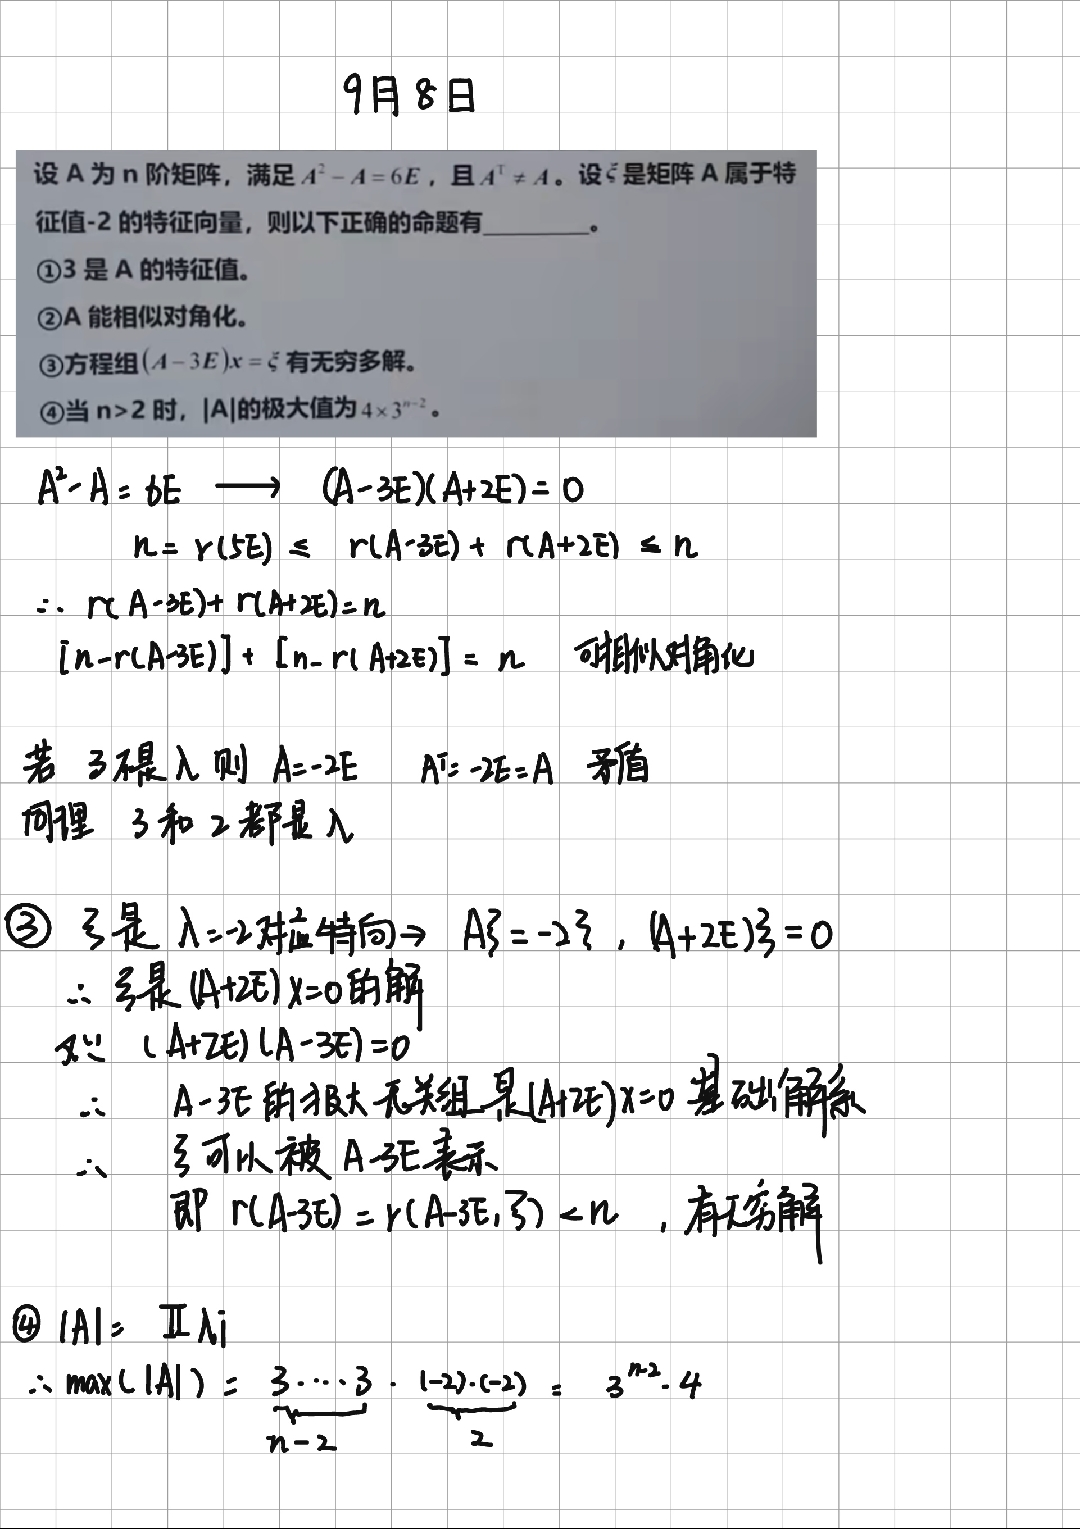 9月8日
设 A 为 n 阶矩阵，满足 A² − A = 6E，且 Aᵀ ≠ A。设 ξ 是矩阵 A 属于特
征值-2 的特征向量，则以下正确的命题有________。
①3 是 A 的特征值。
②A 能相似对角化。
③方程组(A − 3E)x = ξ 有无穷多解。
④当 n>2 时，|A|的极大值为 4×3ⁿ⁻²。
A²-A=6E ⟶ (A-3E)(A+2E)=0
n = r(5E) ≤ r(A-3E) + r(A+2E) ≤ n
∴ r(A-3E)+r(A+2E)=n
[n-r(A-3E)] + [n-r(A+2E)] = n 可相似对角化
若 3不是 λ 则 A=-2E Aᵀ=-2E=A 矛盾
同理 3 和 2 都是 λ
③ ξ是 λ=-2对应特向→ Aξ=-2ξ , (A+2E)ξ=0
∴ ξ是(A+2E)x=0的解
又∵ (A+2E)(A-3E)=0
∴ A-3E的极大无关组是(A+2E)x=0 基础解系
∴ ξ可以被 A-3E表示
即 r(A-3E) = r(A-3E, ξ) < n , 有无穷解
④ |A| = Π λi
∴ max(|A|) = 3·…·3 · (-2)·(-2) = 3ⁿ⁻²·4
n-2 2